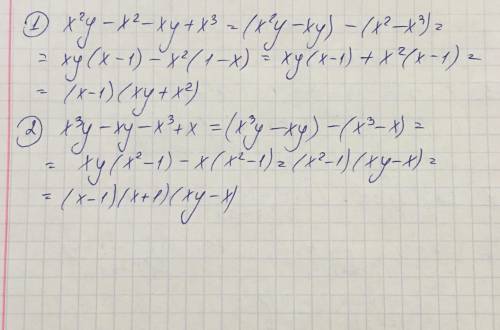 ① x²y - x² - xy + x³ = (x²y - xy) - (x² - x³) =
= xy(x-1) - x²(1-x) = xy(x-1) + x²(x-1) =
= (x-1)(xy + x²)
② x³y - xy - x³ + x = (x³y - xy) - (x³ - x) =
= xy(x² - 1) - x(x² - 1) = (x² - 1)(xy - x) =
= (x-1)(x+1)(xy - x)